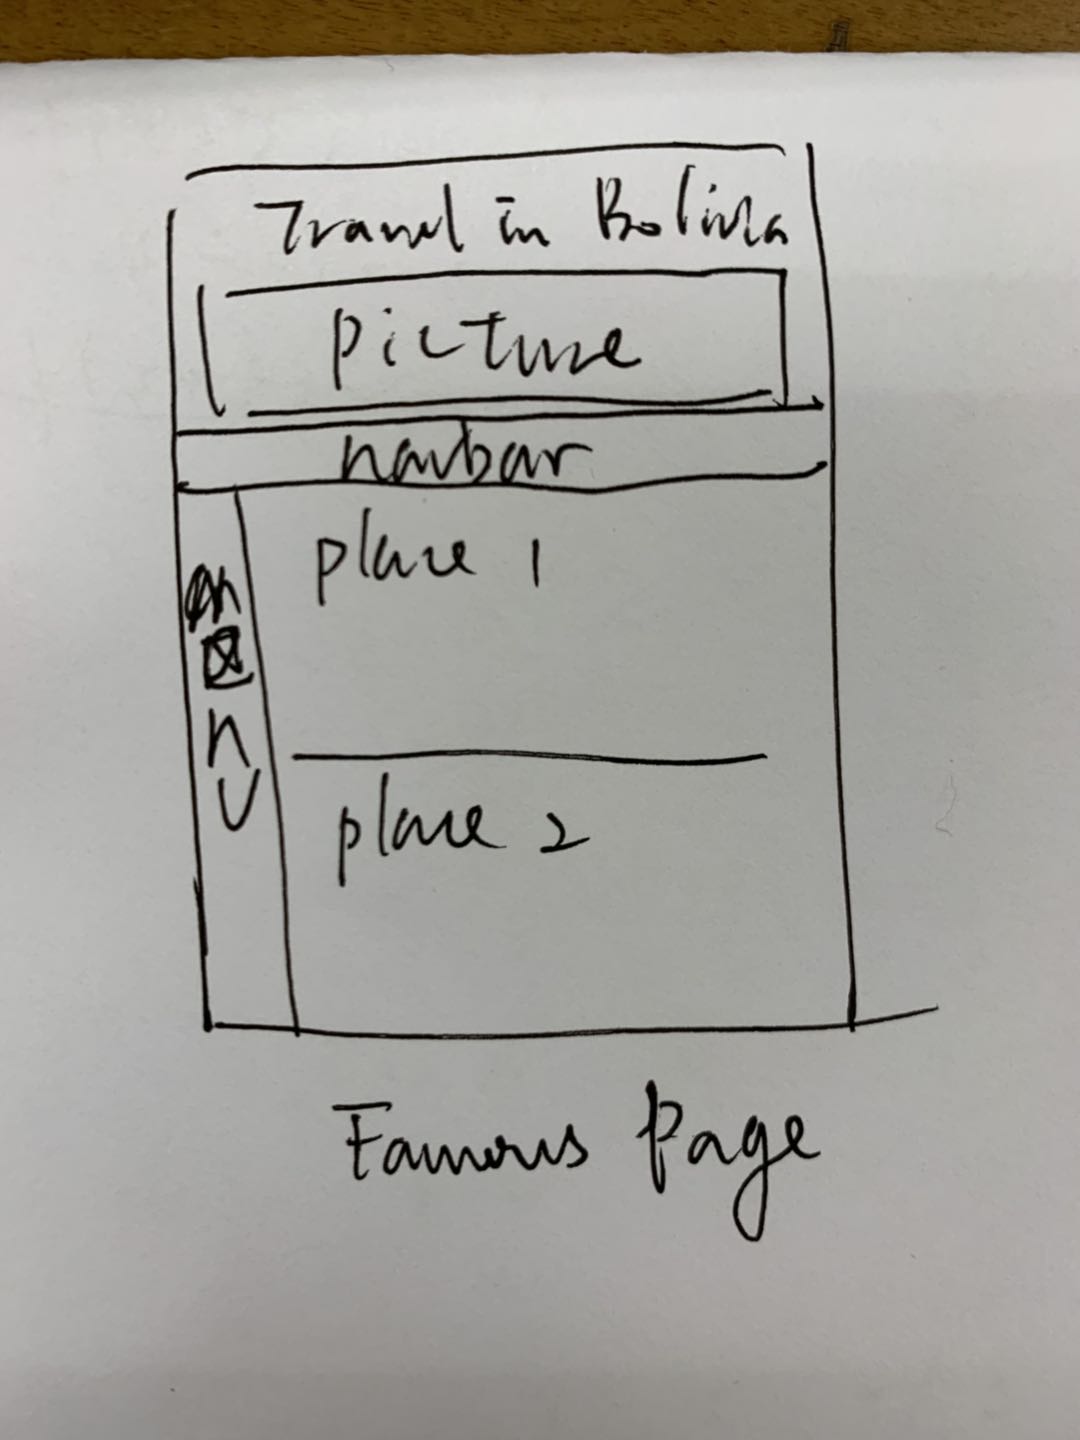 Travel in Bolivia
picture
navbar
place 1
n
u
place 2
Famous Page